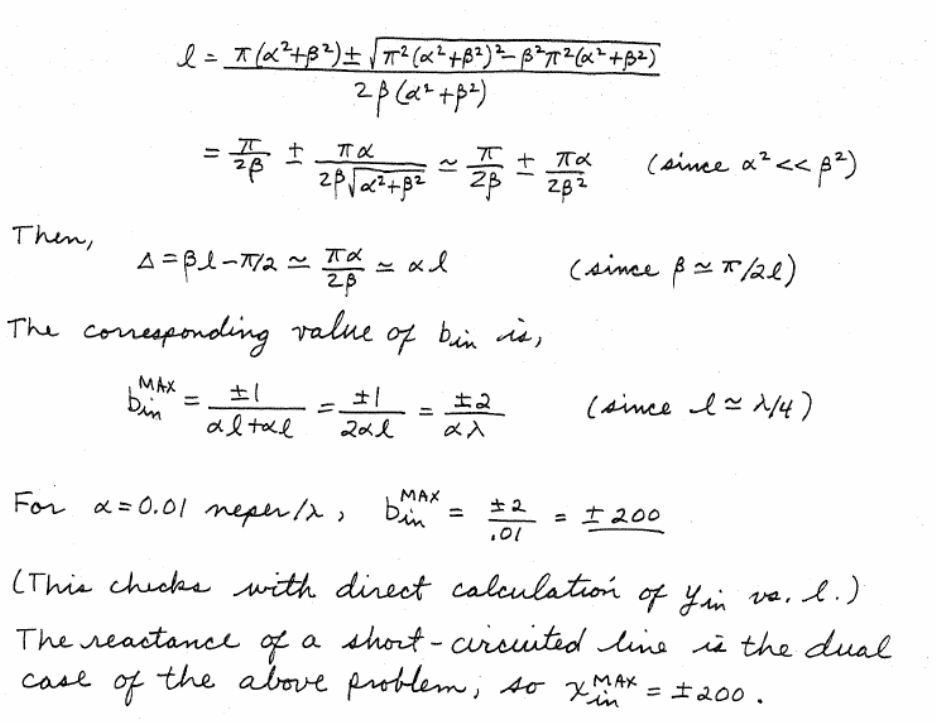 l = π(α²+β²) ± √(π²(α²+β²)² − β²π²(α²+β²)) / 2β(α²+β²)
= π/2β ± πα/(2β√(α²+β²)) ≃ π/2β ± πα/2β² (since α² << β²)
Then,
Δ = βl − π/2 ≃ πα/2β ≃ αl (since β ≃ π/2l)
The corresponding value of bin is,
bin^MAX = ±1/(αl+αl) = ±1/2αl = ±2/αλ (since l ≃ λ/4)
For α = 0.01 neper/λ, bin^MAX = ±2/.01 = ±200
(This checks with direct calculation of yin vs. l.)
The reactance of a short-circuited line is the dual
case of the above problem; so xin^MAX = ±200.